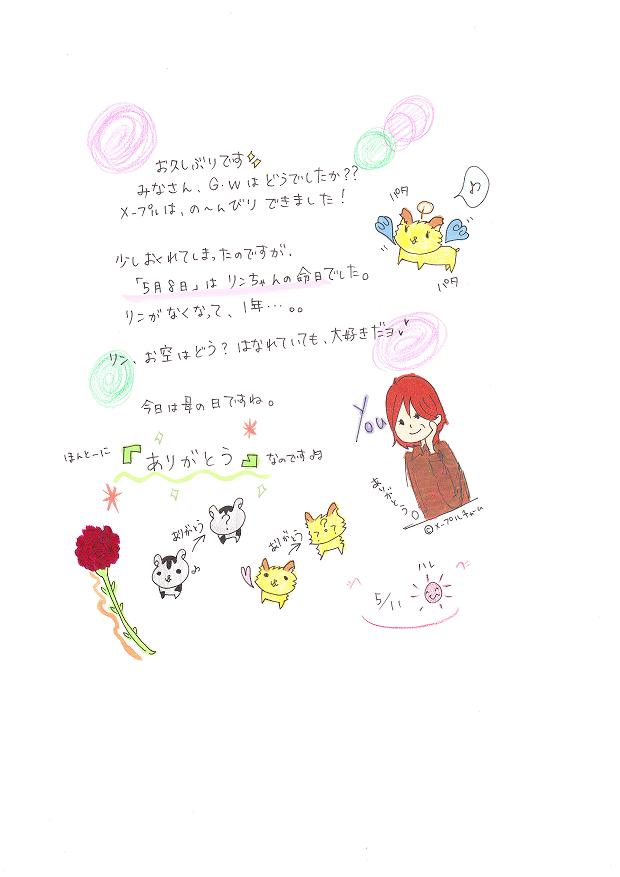 お久しぶりです
みなさん、G.Wはどうでしたか??
メープルは、の〜んびりできました!
パタ
パタ
少しおくれてしまったのですが、
「5月8日」はリンちゃんの命日でした。
リンがなくなって、1年…。。
リン、お空はどう?はなれていても、大好きだヨ
今日は母の日ですね。
ほんとーに『ありがとう』なのです♪
You
ありがとう。
©メープルチャーム
ありがとう
?
♪
ありがとう
???
5/11
ハレ